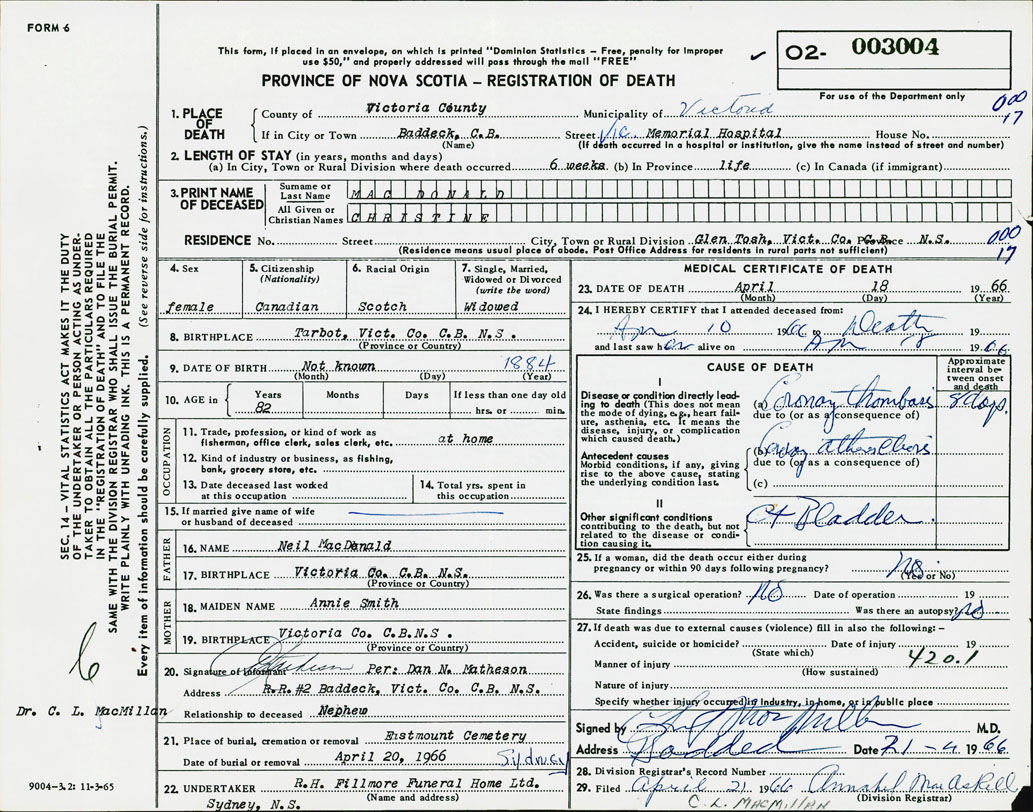 FORM 6
This form, if placed in an envelope, on which is printed "Dominion Statistics – Free, penalty for improper
use $50," and properly addressed will pass through the mail "FREE"
PROVINCE OF NOVA SCOTIA – REGISTRATION OF DEATH
✓ O2- 003004
For use of the Department only
000
17
1. PLACE OF DEATH
County of Victoria County Municipality of Victoria
If in City or Town Baddeck, C.B. Street Vic. Memorial Hospital House No.
(Name) (If death occurred in a hospital or institution, give the name instead of street and number)
2. LENGTH OF STAY (in years, months and days)
(a) In City, Town or Rural Division where death occurred 6 weeks (b) In Province life (c) In Canada (if immigrant)
3. PRINT NAME OF DECEASED
Surname or Last Name MAC DONALD
All Given or Christian Names CHRISTINE
RESIDENCE No. Street City, Town or Rural Division Glen Tosh, Vict. Co. C.B. Province N.S.
(Residence means usual place of abode. Post Office Address for residents in rural parts not sufficient)
000
17
4. Sex
female
5. Citizenship
(Nationality)
Canadian
6. Racial Origin
Scotch
7. Single, Married,
Widowed or Divorced
(write the word)
Widowed
8. BIRTHPLACE Tarbot, Vict. Co. C.B. N.S.
(Province or Country)
9. DATE OF BIRTH Not known 1884
(Month) (Day) (Year)
10. AGE in Years 82 Months Days If less than one day old
hrs. or min.
OCCUPATION
11. Trade, profession, or kind of work as
fisherman, office clerk, sales clerk, etc. at home
12. Kind of industry or business, as fishing,
bank, grocery store, etc.
13. Date deceased last worked
at this occupation
14. Total yrs. spent in
this occupation
15. If married give name of wife
or husband of deceased
FATHER
16. NAME Neil MacDonald
17. BIRTHPLACE Victoria Co. C.B. N.S.
(Province or Country)
MOTHER
18. MAIDEN NAME Annie Smith
19. BIRTHPLACE Victoria Co. C.B.N.S.
(Province or Country)
20. Signature of Informant Per: Dan N. Matheson
Address R.R.#2 Baddeck, Vict. Co. C.B. N.S.
Relationship to deceased Nephew
21. Place of burial, cremation or removal Eastmount Cemetery
Date of burial or removal April 20, 1966 Sydney
22. UNDERTAKER R.H. Fillmore Funeral Home Ltd.
(Name and address)
Sydney, N.S.
MEDICAL CERTIFICATE OF DEATH
23. DATE OF DEATH April 18 1966
(Month) (Day) (Year)
24. I HEREBY CERTIFY that I attended deceased from:
Apr 10 1966 to Death 19
and last saw her alive on Apr 1966
CAUSE OF DEATH
Approximate
interval be-
tween onset
and death
I
Disease or condition directly lead-
ing to death (This does not mean
the mode of dying, e.g., heart fail-
ure, asthenia, etc. It means the
disease, injury, or complication
which caused death.)
(a) Coronary thrombosis 8 days
due to (or as a consequence of)
Antecedent causes
Morbid conditions, if any, giving
rise to the above cause, stating
the underlying condition last.
(b)
due to (or as a consequence of)
(c)
II
Other significant conditions
contributing to the death, but not
related to the disease or condi-
tion causing it.
Bladder
25. If a woman, did the death occur either during
pregnancy or within 90 days following pregnancy? No
(Yes or No)
26. Was there a surgical operation? No Date of operation 19
State findings Was there an autopsy? No
27. If death was due to external causes (violence) fill in also the following: –
Accident, suicide or homicide? Date of injury 19
(State which)
Manner of injury 420.1
(How sustained)
Nature of injury
Specify whether injury occurred in industry, in home, or in public place
Signed by M.D.
Address Baddeck Date 21-4 1966
28. Division Registrar's Record Number
29. Filed April 21 1966 Annabel MacAskill
(Division Registrar)
C. L. MACMILLAN
SEC. 14 – VITAL STATISTICS ACT MAKES IT THE DUTY
OF THE UNDERTAKER OR PERSON ACTING AS UNDER-
TAKER TO OBTAIN ALL THE PARTICULARS REQUIRED
IN THE "REGISTRATION OF DEATH" AND TO FILE THE
SAME WITH THE DIVISION REGISTRAR WHO SHALL ISSUE THE BURIAL PERMIT.
WRITE PLAINLY WITH UNFADING INK. THIS IS A PERMANENT RECORD.
Every item of information should be carefully supplied. (See reverse side for instructions.)
6
Dr. C. L. MacMillan
9004-3.2: 11-3-65